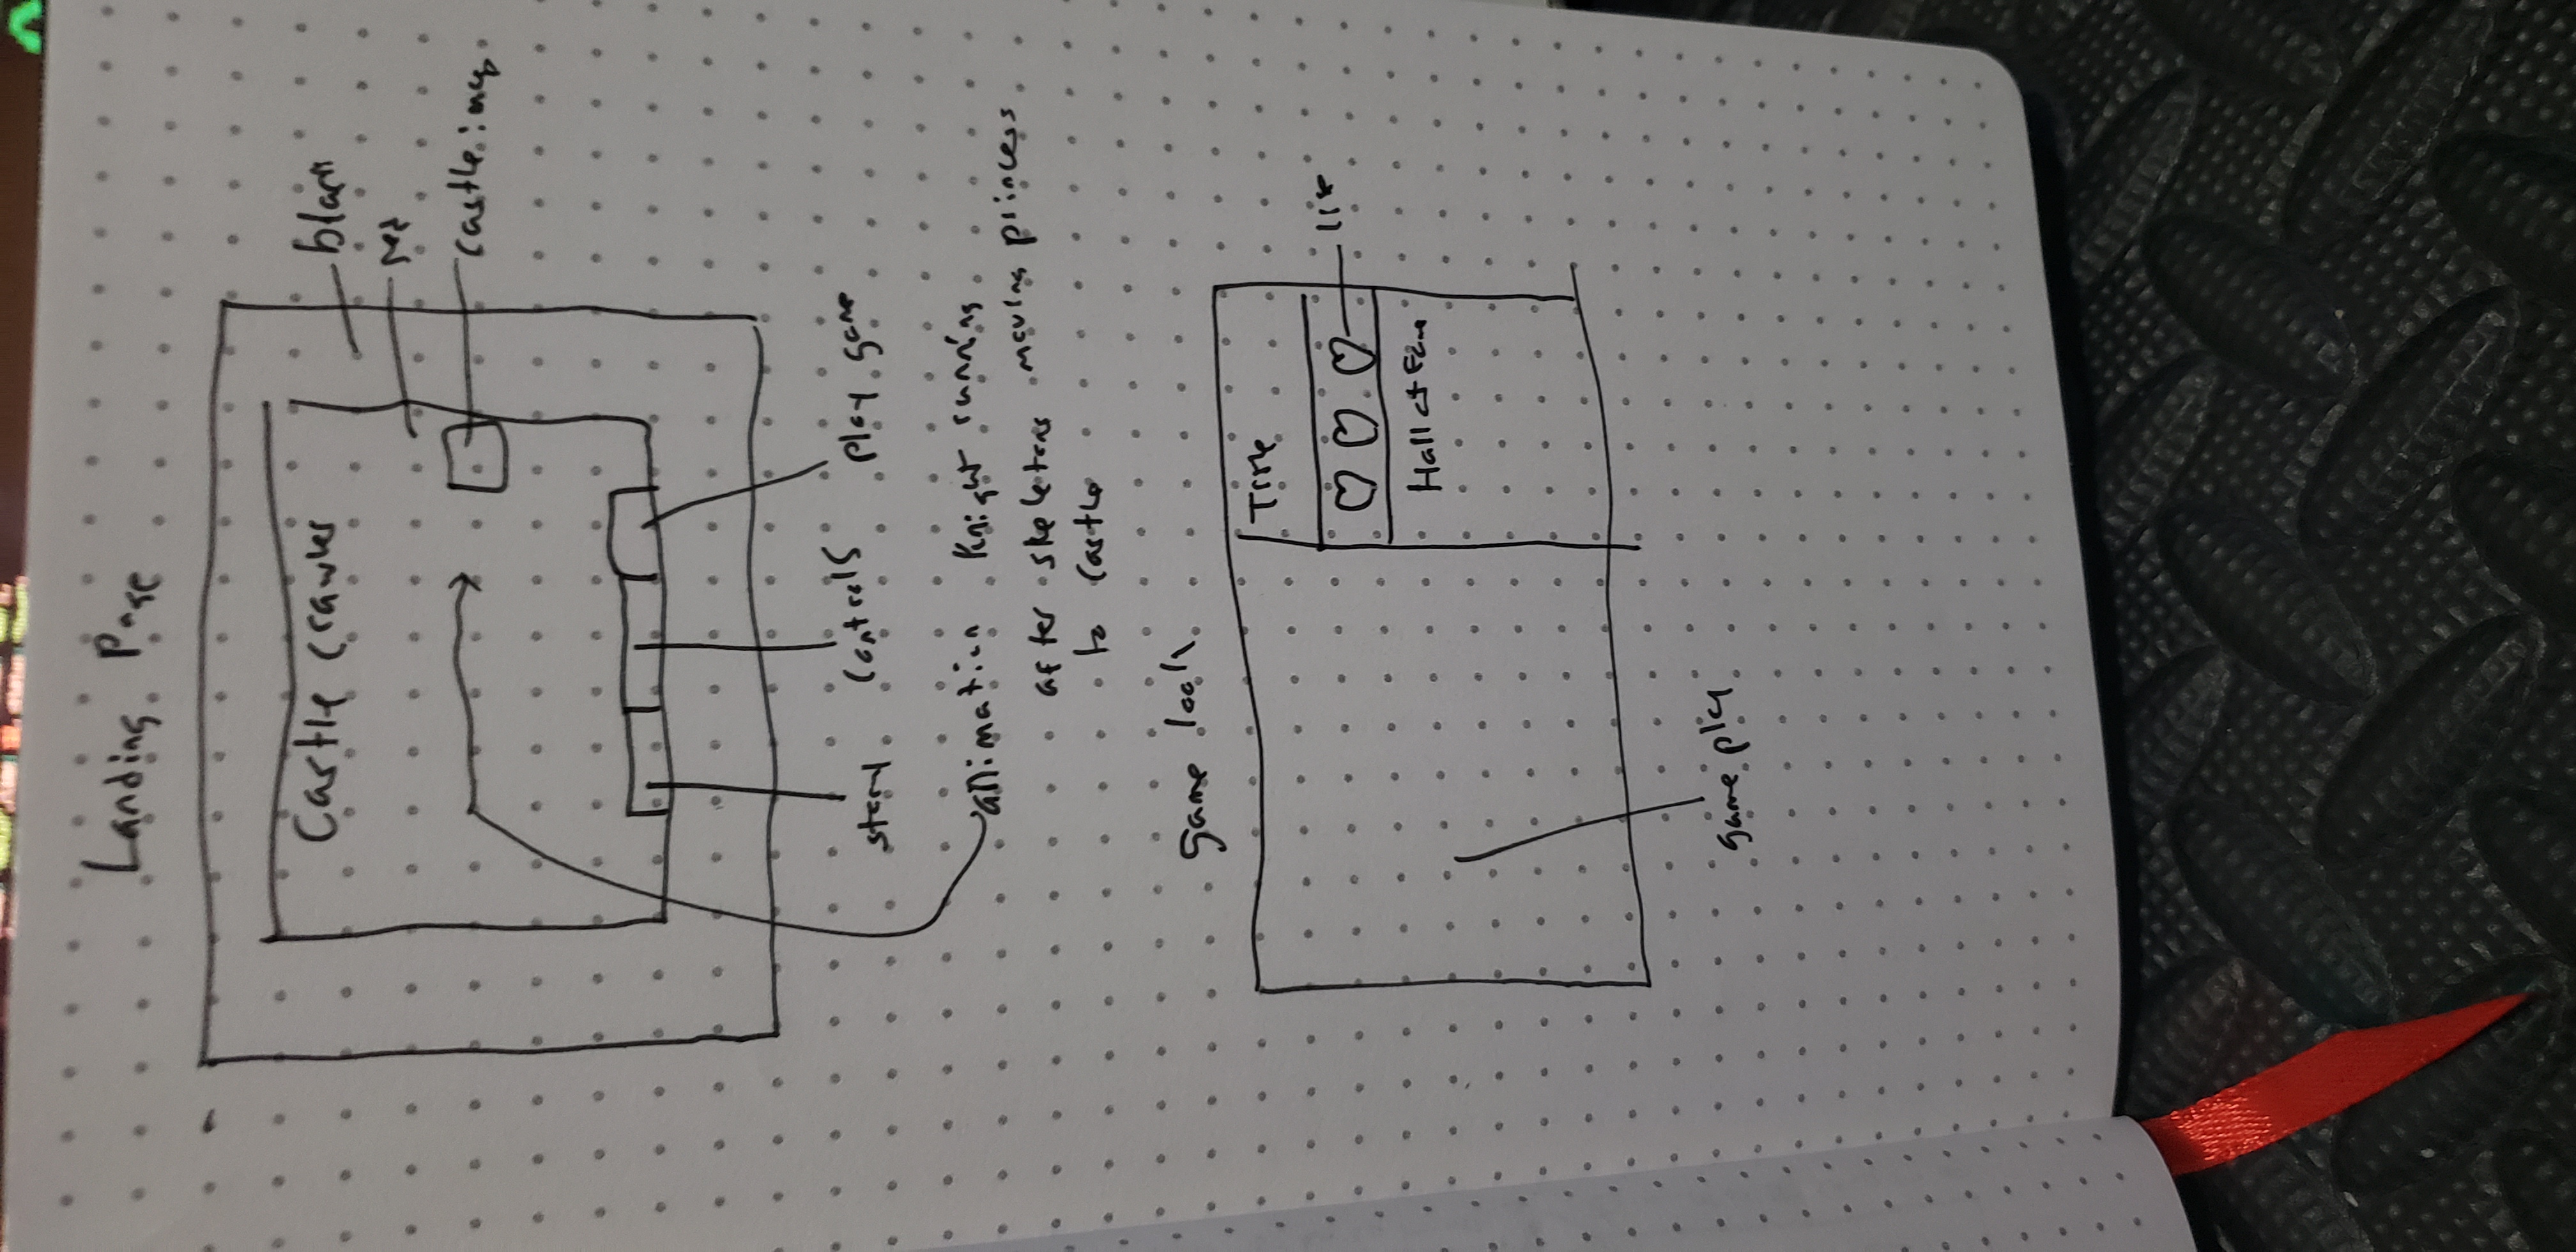 Landing Page
Castle crawler
black
red
castle img
story
controls
play game
animation knight running
after skeletons moving princess
to castle
game look
Title
life
Hall of Fame
game play